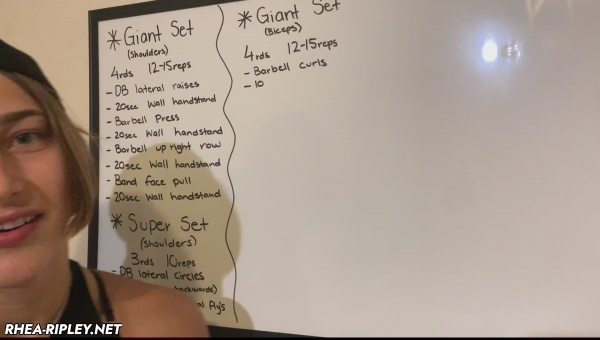 * Giant Set
(Shoulders)
4rds 12-15reps
- DB lateral raises
- 20sec Wall handstand
- Barbell Press
- 20sec Wall handstand
- Barbell up right row
- 20sec Wall handstand
- Band face pull
- 20sec Wall handstand
* Super Set
(Shoulders)
3rds 10reps
- DB lateral circles
backwards)
Fly's
* Giant Set
(Biceps)
4rds 12-15reps
- Barbell curls
- 10
RHEA-RIPLEY.NET